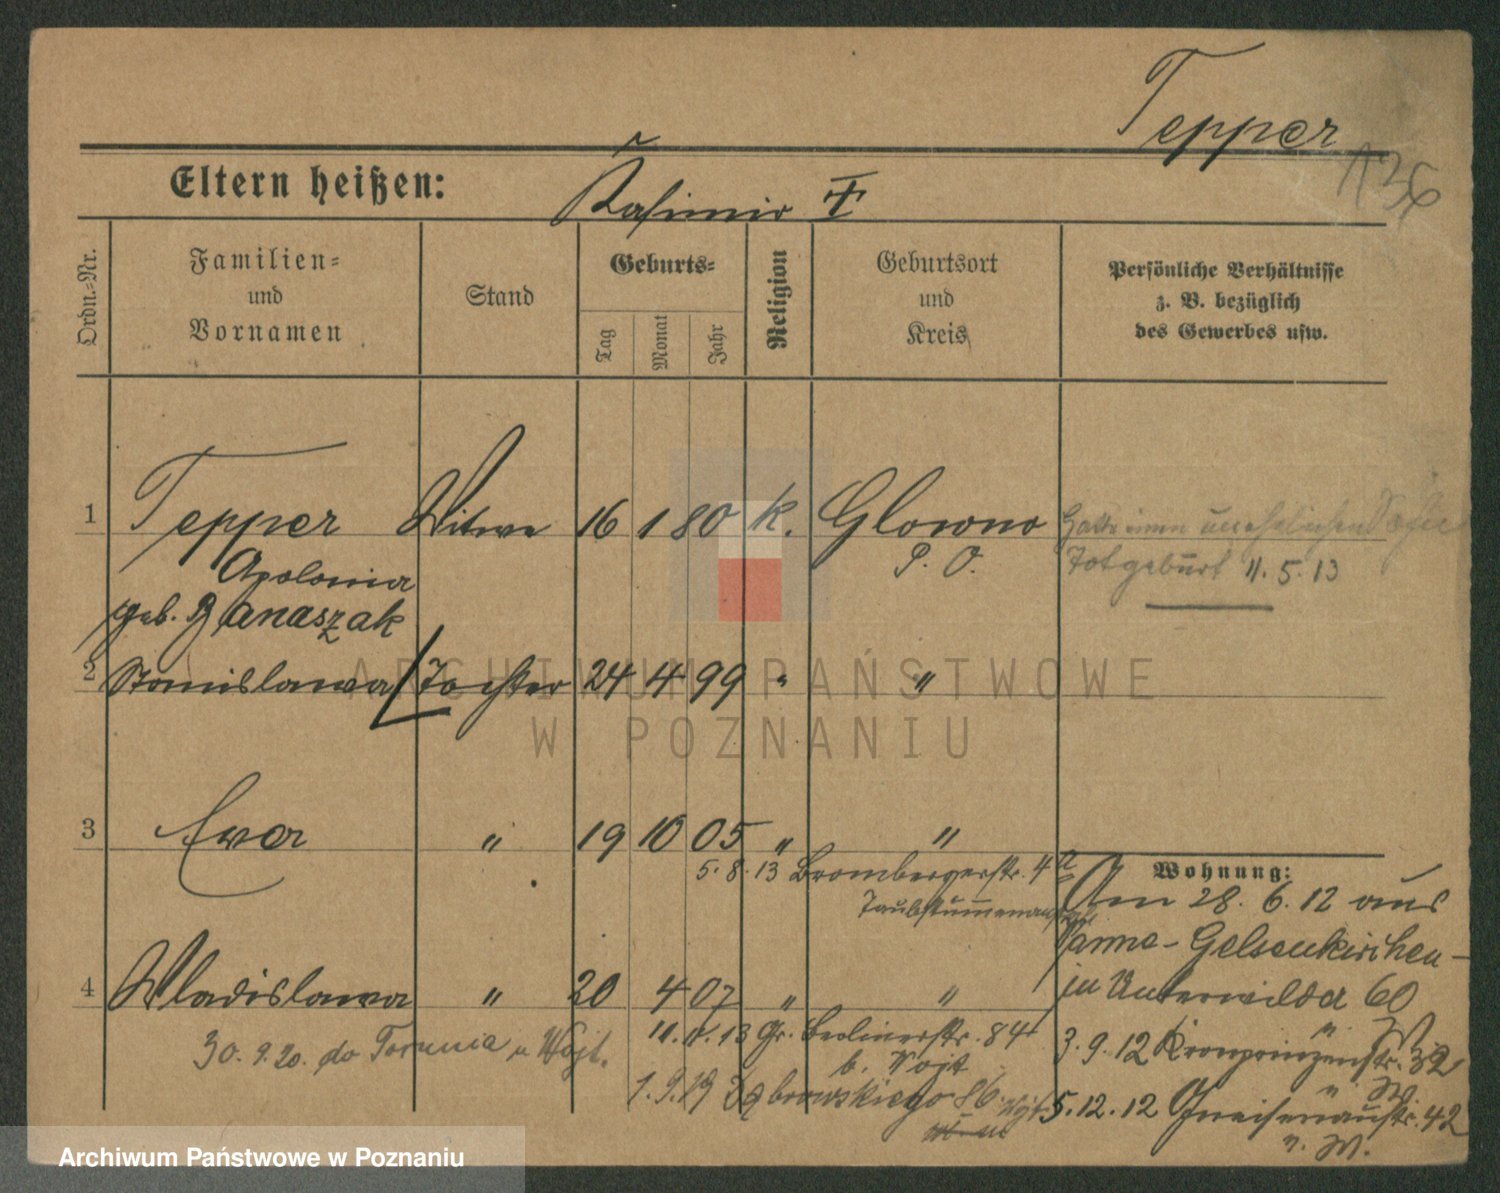 Tepper
136
Eltern heißen: Kasimir
Ordn.-Nr.
Familien-
und
Vornamen
Stand
Geburts-
Tag
Monat
Jahr
Religion
Geburtsort
und
Kreis
Persönliche Verhältnisse
z. B. bezüglich
des Gewerbes usw.
1 Tepper Witwe 16 1 80 k. Glowno
Apolonia P. O.
geb. Banaszak
unehelichen
Totgeburt 11. 5. 13
2 Stanislawa Tochter 24 4 99 " "
3 Ewa " 19 10 05 " "
5. 8. 13 Brombergerstr. 4a
Taubstummenanstalt
4 Wladislawa " 20 4 07 " "
11. 11. 13 Gr. Berlinerstr. 84
b. Vojt
30. 9. 20. do Torunia
1. 9. 19 Dąbrowskiego 86
Wohnung:
Am 28. 6. 12 aus
Wanne-Gelsenkirchen-
in Unterwilda 60
3. 9. 12 Kronprinzenstr. 32
5. 12. 12 Gneisenaustr. 42
ARCHIWUM PAŃSTWOWE
W POZNANIU
Archiwum Państwowe w Poznaniu